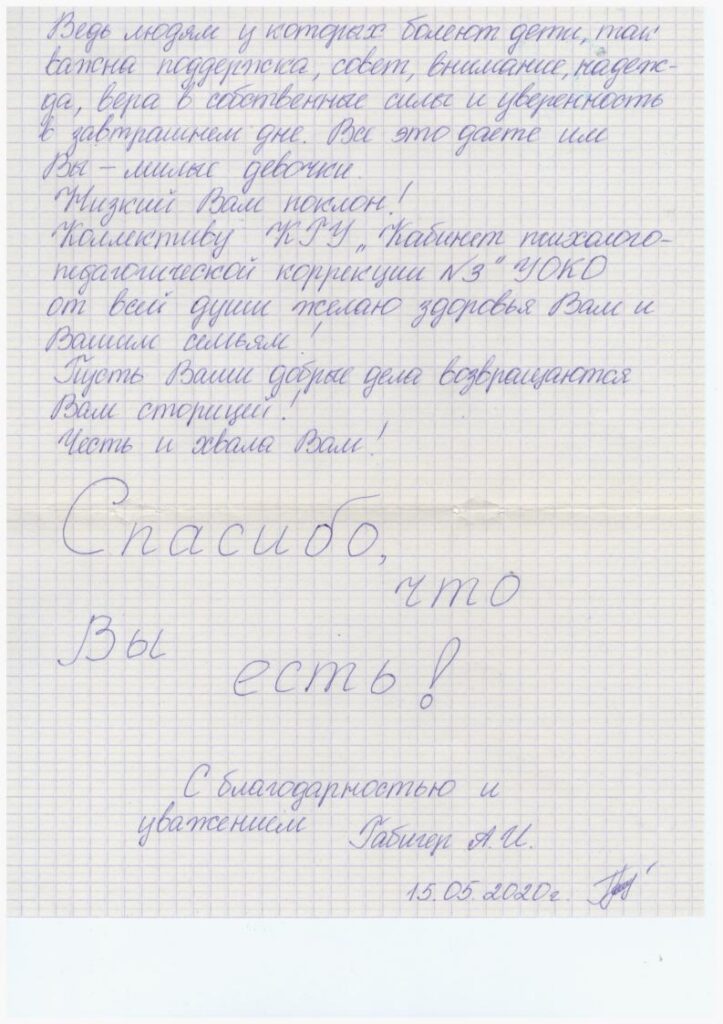 Ведь людям у которых болеют дети, так
важна поддержка, совет, внимание, надеж-
да, вера в собственные силы и уверенность
в завтрашнем дне. Все это даете им
Вы – милые девочки.
Низкий Вам поклон!
Коллективу КГУ „Кабинет психолого-
педагогической коррекции №3" УОКО
от всей души желаю здоровья Вам и
Вашим семьям!
Пусть Ваши добрые дела возвращаются
Вам сторицей!
Честь и хвала Вам!
Спасибо,
что
Вы
есть!
С благодарностью и
уважением Габигер А.И.
15.05.2020г.